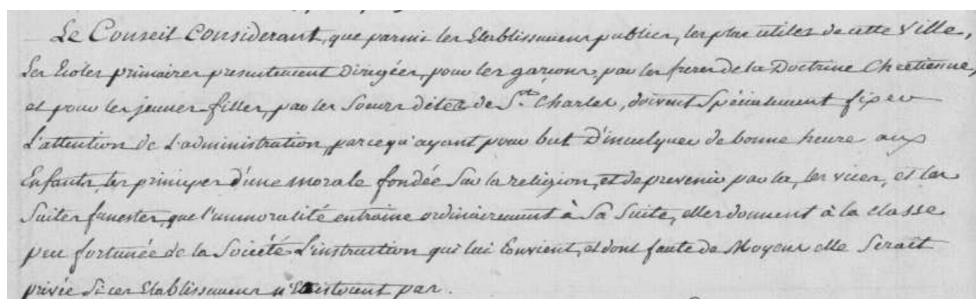 Le Conseil Considerant, que parmis les Etablissemens publics, les plus utiles de cette Ville,
Les Ecoles primaires presentement Dirigées, pour les garçons, par les freres de la Doctrine Chretienne,
et pour les jeunes filles, par les Soeurs dites de St. Charles, doivent Spécialement fixer
L'attention de L'administration, parcequ'ayant pour but D'inculquer de bonne heure aux
Enfants les principes d'une morale fondée Sur la religion, et de prevenir par la, les vices, et les
Suites funestes, que l'immoralité entraine ordinairement à Sa Suite, elles donnent à la classe
peu fortunée de la Société L'instruction qui lui Convient, et dont faute de Moyens elle Serait
privée Si ces Etablissemens n'Existoient pas.